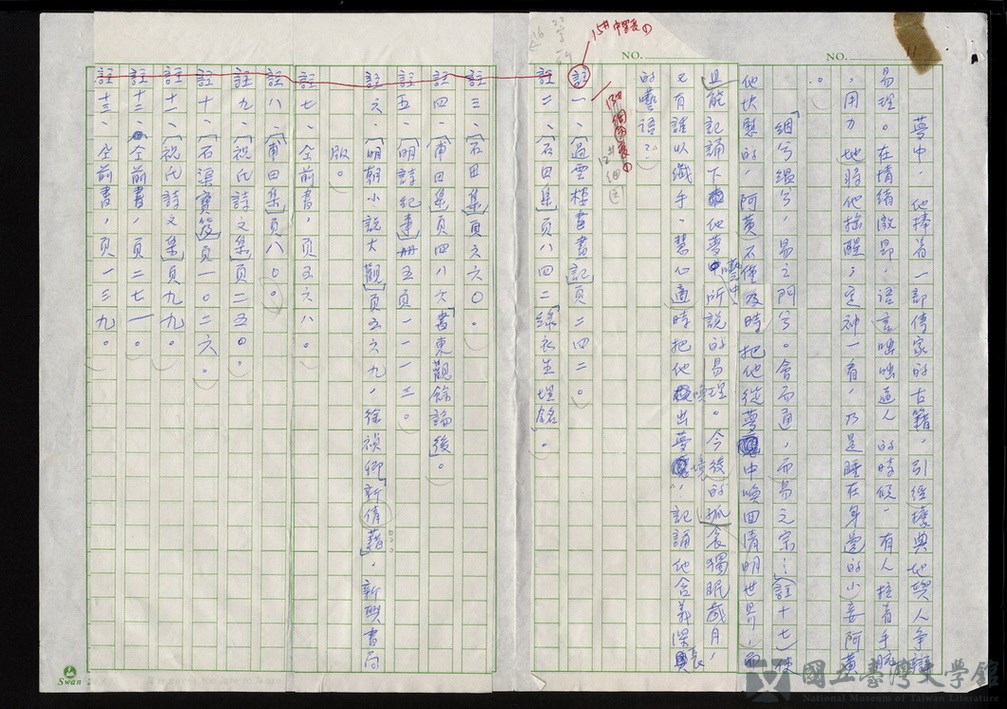 夢中，他捧著一部傳家的古籍，引經據典地與人爭論
易理。在情緒激昂，語言咄咄逼人的時候，有人拉著手腕
，用力地將他搖醒；定神一看，乃是睡在身邊的小妾阿黃
。
「絪兮縕兮，易之門兮。會而通，而易之宗…」(註十七)使
他快慰的，阿黃不僅及時把他從夢中喚回清明世界，而
且能記誦下他夢囈中所說的易理。今後的孤衾獨眠歲月，
又有誰以纖手、慧心適時把他喚出夢境，記誦他含義深長
的囈語？
註一、「過雲樓書畫記」頁二四二。
註二、「石田集」頁八四二「綠衣生埋銘」。
註三、「石田集」頁六六〇。
註四、「甫田集」頁四八六「書東觀餘論後」。
註五、「明詩紀事」冊五頁一一一三。
註六、「明朝小說大觀」頁五六九，徐禎卿「新倩藉」，新興書局
版。
註七、仝前書，頁五六八。
註八、「甫田集」頁八〇。
註九、「祝氏詩文集」頁二五〇。
註十、「石渠寶笈」頁一〇二六。
註十一、「祝氏詩文集」頁九九九。
註十二、仝前書，頁二七一。
註十三、仝前書，頁一三九。
NO.
NO.
Swan
國立臺灣文學館
National Museum of Taiwan Literature